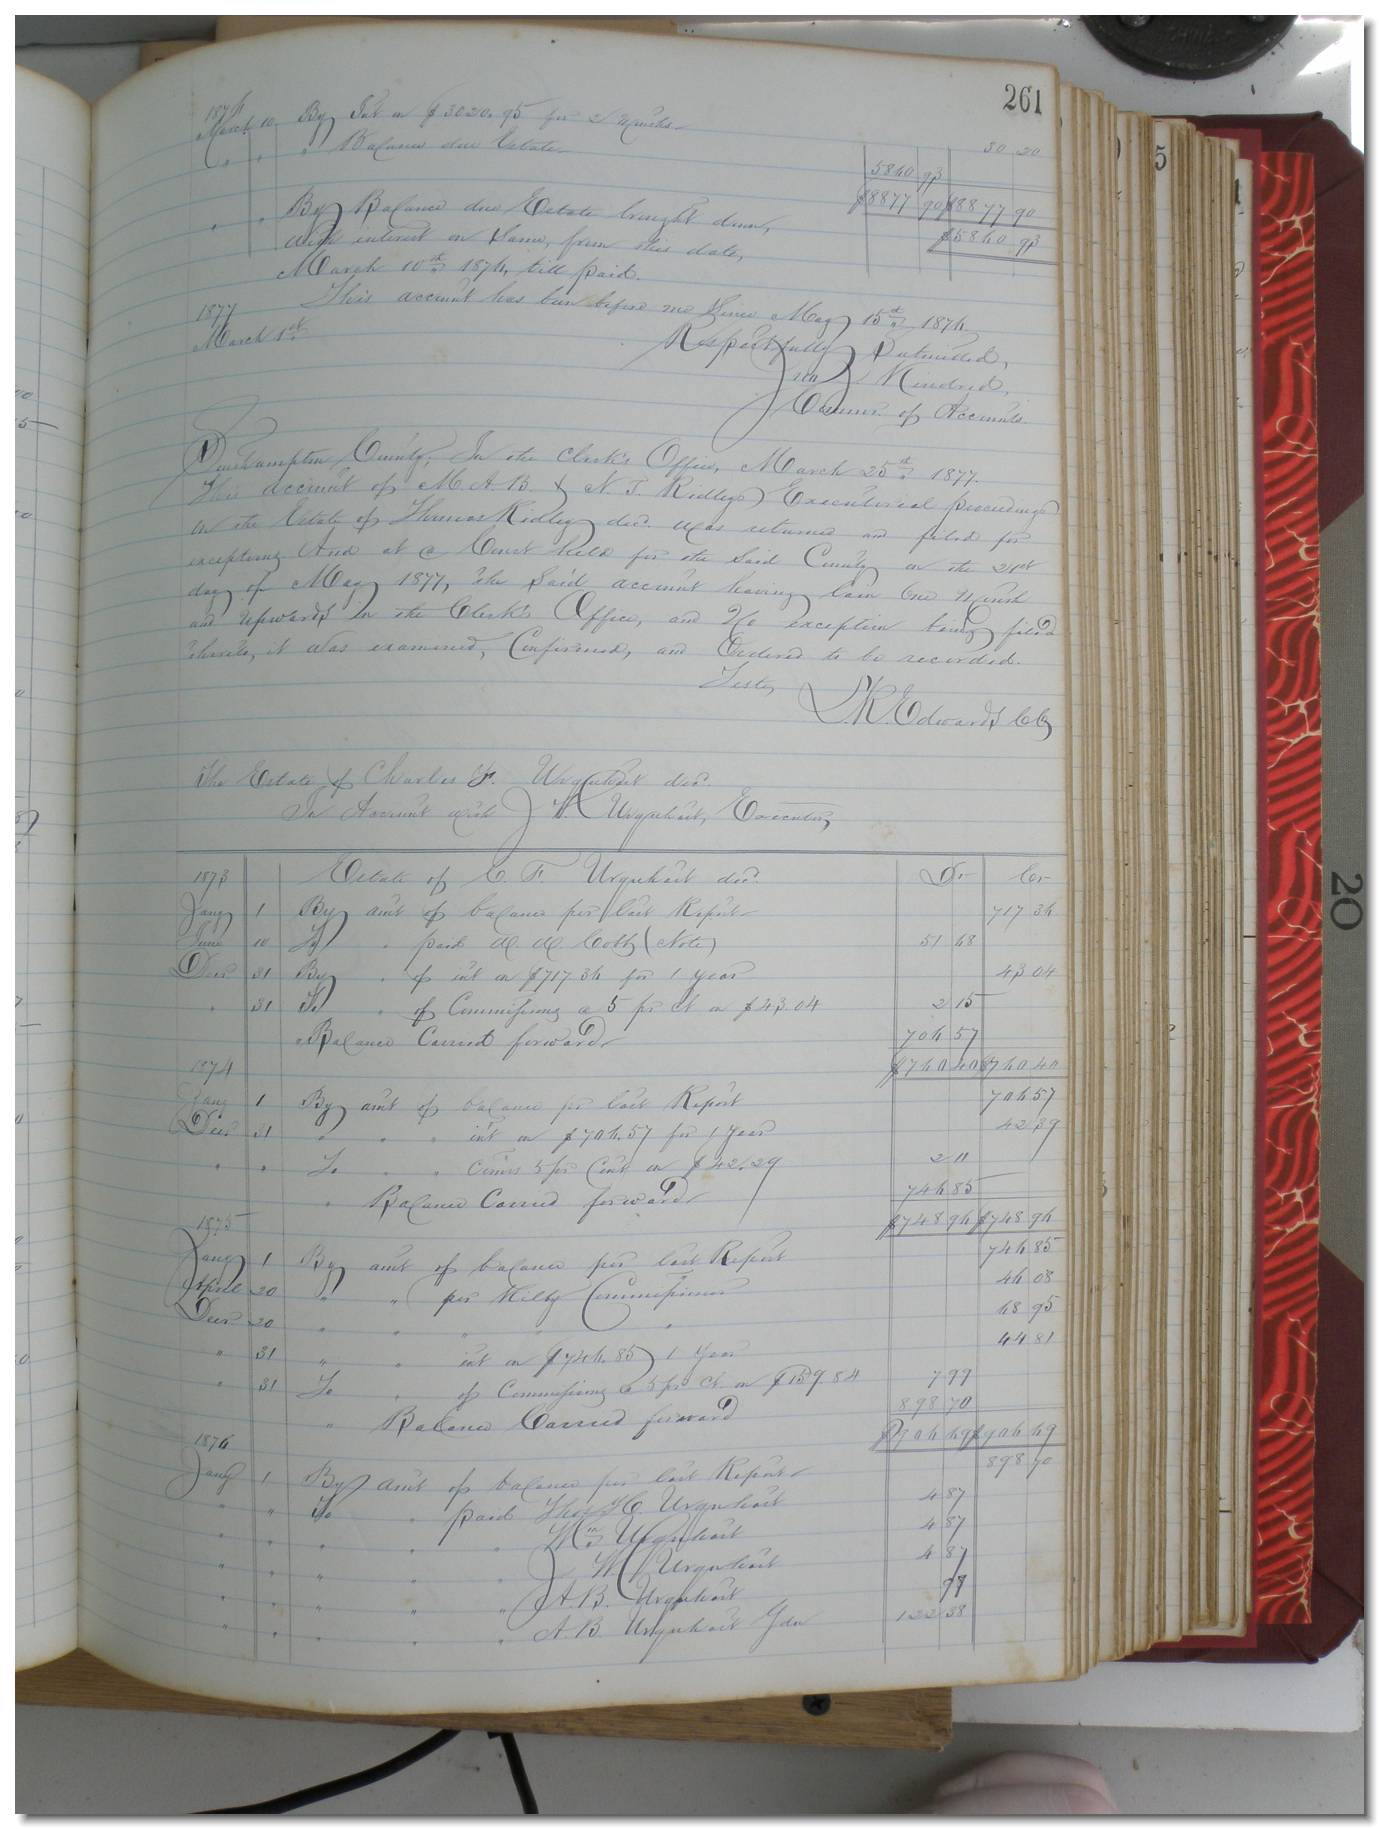 261
1876
March 10 By Int on $3020.95 for 2 Months 30 20
" " " Balance due Estate 5840 93
$8877 90 $8877 90
" " By Balance due Estate brought down, $5840 93
with interest on Same, from this date,
March 10th 1876, till paid.
1877
March 1st This account has been before me Since May 15th 1876
Respectfully Submitted,
Jno J. Kindred,
Commr. of Accounts.
Southampton County; In the Clerk's Office, March 25th 1877.
This account of M. A. B. & N. T. Ridley's Executorial proceedings
on the Estate of Thomas Ridley dec. was returned and filed for
exceptions And at a Court held for the Said County on the 21st
day of May 1877, the Said account having lain One Month
and upwards in the Clerk's Office, and No exception being filed
thereto, it was examined, Confirmed, and Ordered to be recorded.
Teste,
L. R. Edwards C.C.
The Estate of Charles F. Urquhart dec.
In Account with J. W. Urquhart, Executor,
1873 Estate of C. F. Urquhart dec. Dr Cr
Jany 1 By amt of balance per last Report 717 36
June 10 To " paid Cobb (Note) 51 68
Decr 31 By " of int on $717.36 for 1 year 43 04
" 31 To " of Commissions a 5 pr ct on $43.04 2 15
" Balance Carried forward 706 57
$760 40 $760 40
1874
Jany 1 By amt of balance per last Report 706 57
Decr 31 " " " int on $706.57 for 1 Year 42 39
" " To " " Comrs 5 pr Cent on $42.29 2 11
" Balance Carried forward 746 85
$748 96 $748 96
1875
Jany 1 By amt of balance per last Report 746 85
April 20 " " per Milby Commissioner 46 08
Decr 20 " " " " " 68 95
" 31 " " int on $746.85 1 Year 44 81
" 31 To " of Commissions a 5 pr Ct. on $159.84 7 99
" Balance Carried forward 898 70
$906 69 $906 69
1876
Jany 1 By amt of balance per last Report 898 70
" " To " paid Thos H. Urquhart 4 87
" " " " " Wm Urquhart 4 87
" " " " " J. W. Urquhart 4 87
" " " " " A. B. Urquhart
" " " " " A. B. Urquhart Gdn 122 38
20